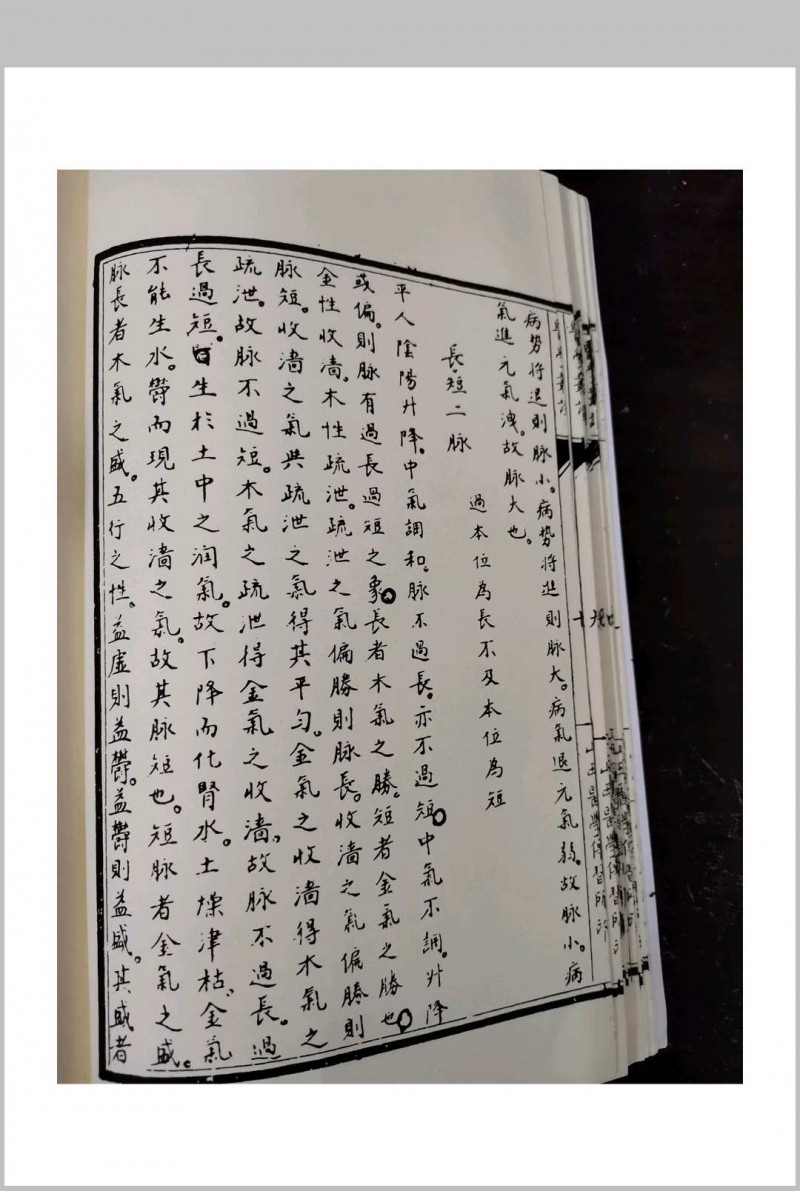 病勢將退則脉小。病勢將進則脉大。病氣退元氣弱。故脉小。病
氣進元氣洩。故脉大也。
長短二脉
過本位為長不及本位為短
平人陰陽升降。中氣調和。脉不過長。亦不過短。中氣不調。升降
或偏。則脉有過長過短之象。長者木氣之勝。短者金氣之勝也。
金性收濇。木性疏泄。疏泄之氣偏勝則脉長。收濇之氣偏勝則
脉短。收濇之氣與疏泄之氣得其平匀。金氣之收濇得木氣之
疏泄。故脉不過短。木氣之疏泄得金氣之收濇。故脉不過長。過
長過短。生於土中之潤氣。故下降而化腎水。土燥津枯。金氣
不能生水。欝而現其收濇之氣。故其脉短也。短脉者金氣之盛。
脉長者木氣之盛。五行之性。益虛則益欝。益欝則益盛。其盛者
山西醫學傳習所